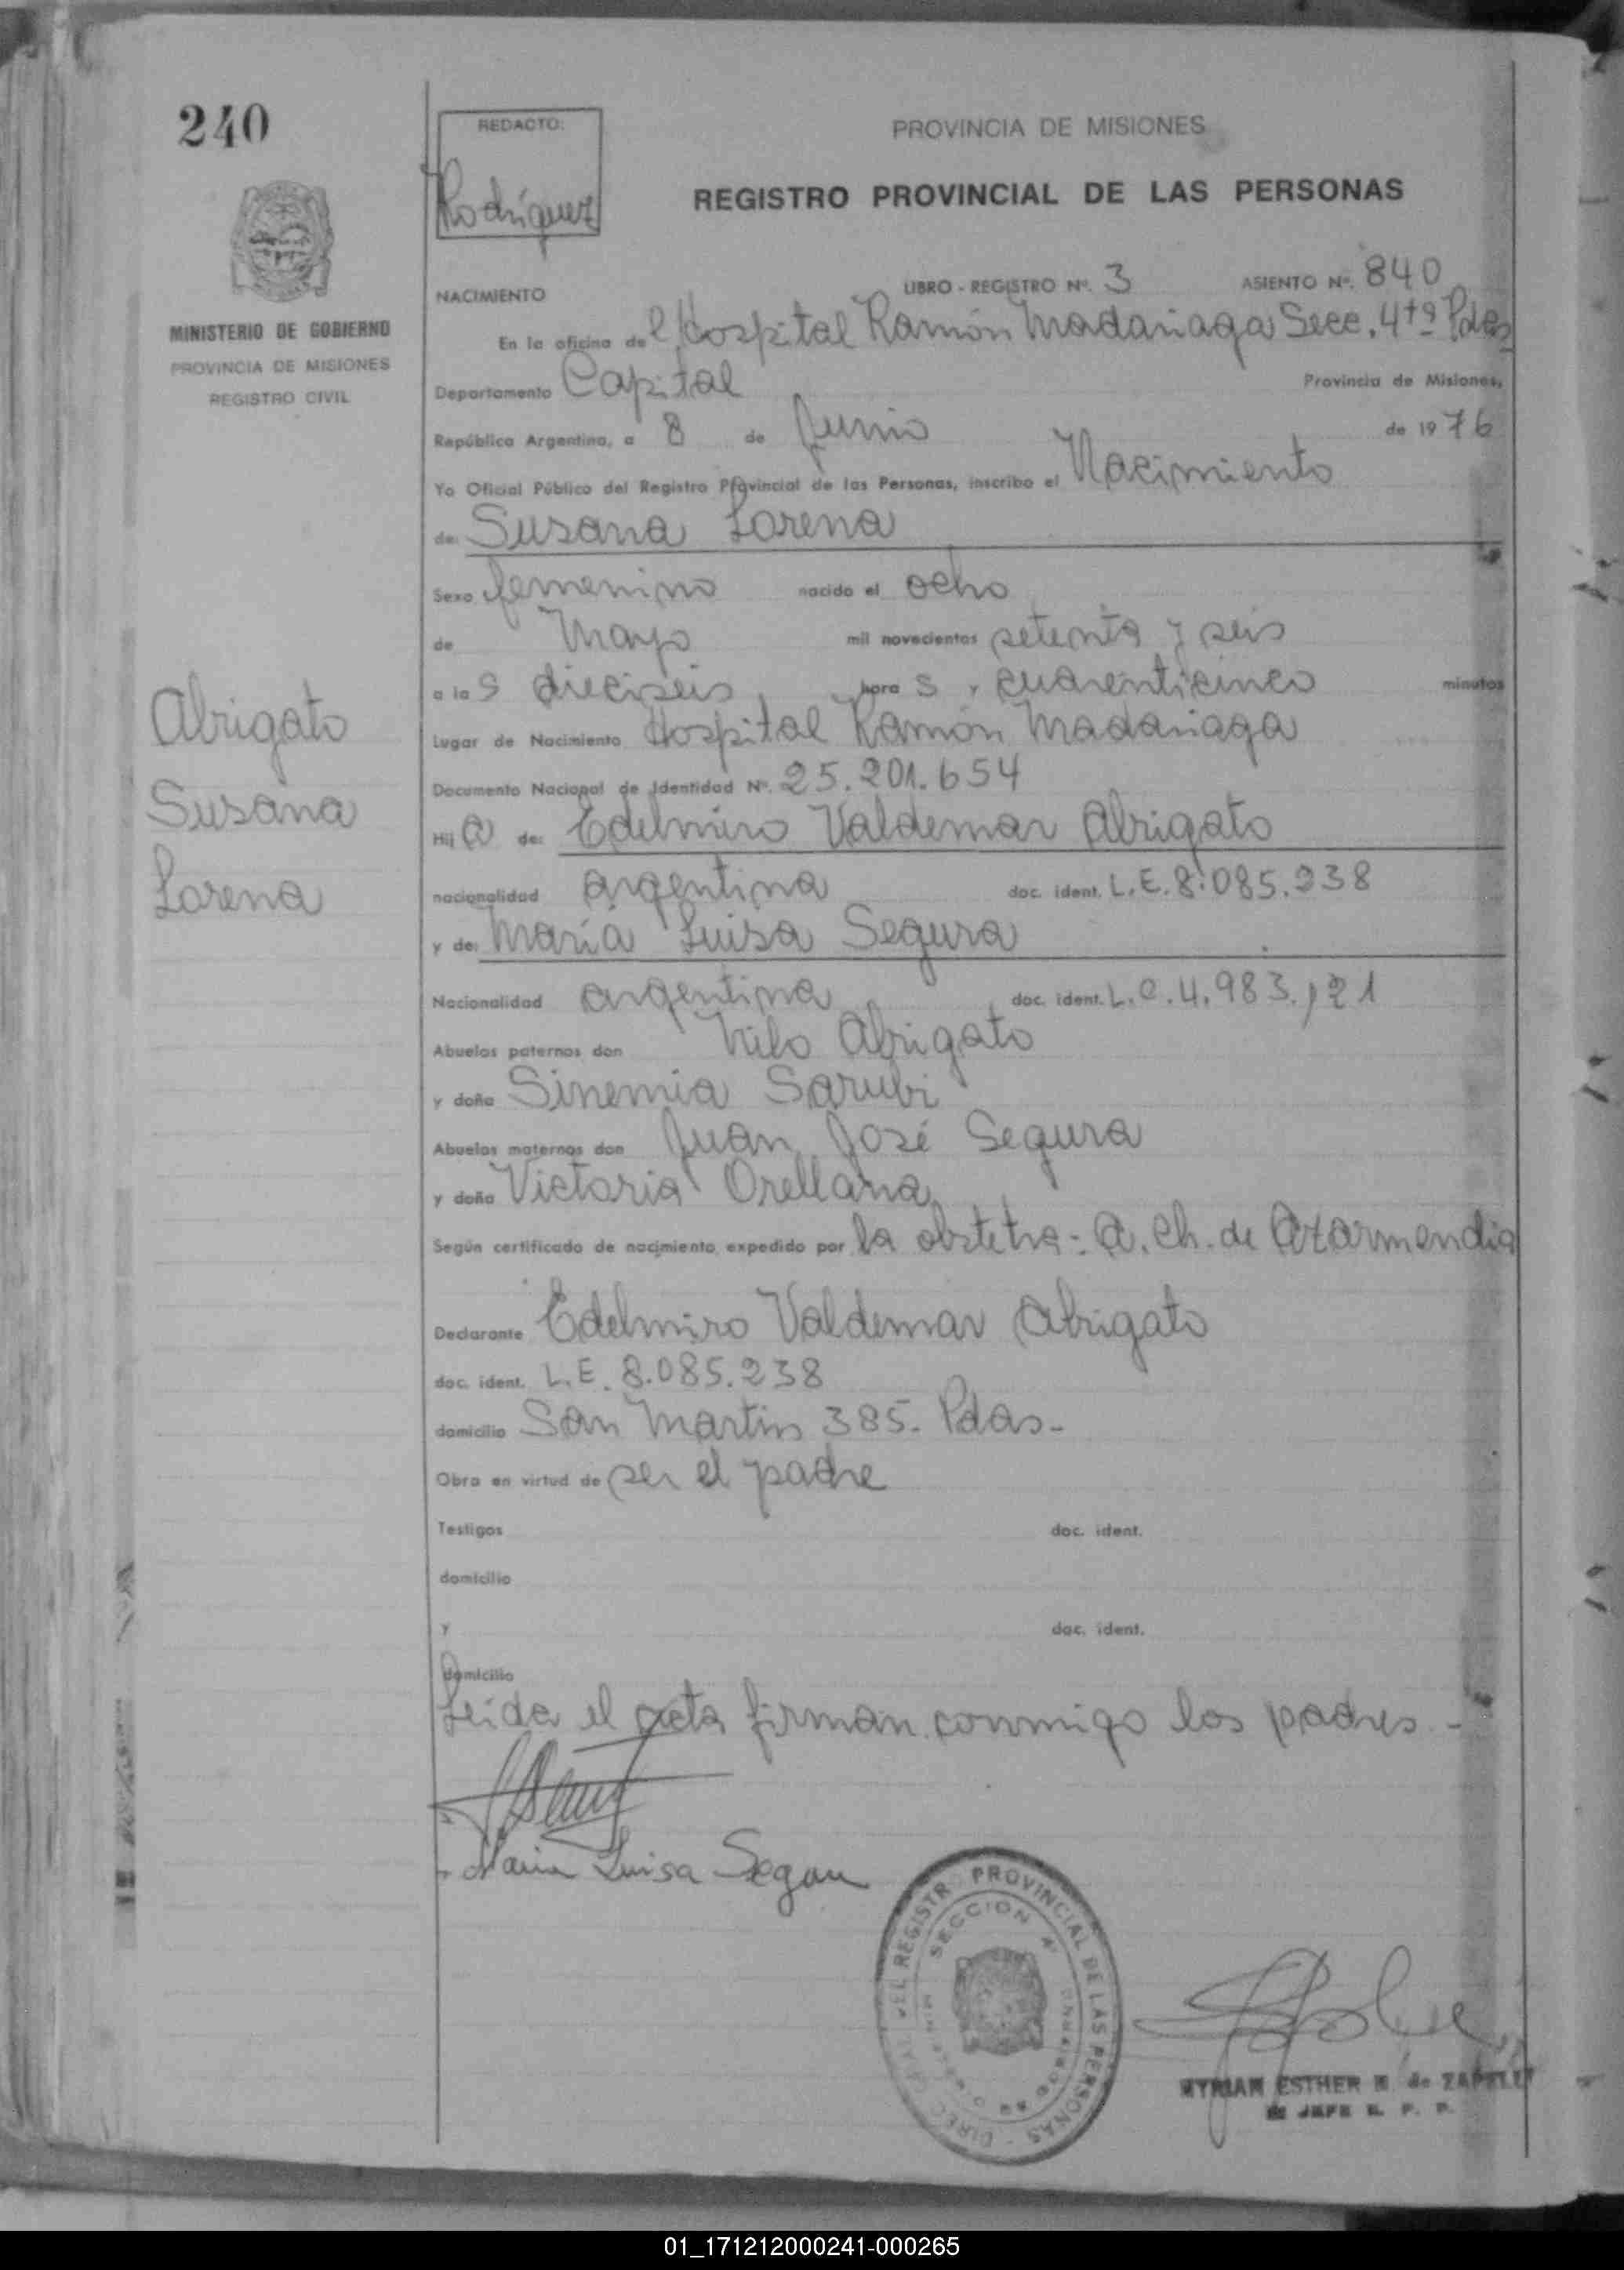 240
REDACTO:
Rodríguez
PROVINCIA DE MISIONES
REGISTRO PROVINCIAL DE LAS PERSONAS
MINISTERIO DE GOBIERNO
PROVINCIA DE MISIONES
REGISTRO CIVIL
NACIMIENTO LIBRO - REGISTRO Nº. 3 ASIENTO Nº. 840
En la oficina del Hospital Ramón Madariaga Secc. 4ta Pdas
Departamento Capital Provincia de Misiones,
República Argentina, a 8 de Junio de 1976
Yo Oficial Público del Registro Provincial de las Personas, inscribo el Nacimiento
de: Susana Lorena
Sexo femenino nacido el ocho
de Mayo mil novecientos setenta y seis
a las dieciseis horas y cuarenticinco minutos
Lugar de Nacimiento Hospital Ramón Madariaga
Documento Nacional de Identidad Nº. 25.201.654
Hija de: Edelmiro Valdemar Abrigato
nacionalidad argentina doc. ident. L.E. 8.085.238
y de: María Luisa Segura
Nacionalidad argentina doc. ident. L.C. 4.983.121
Abuelos paternos don Nilo Abrigato
y doña Sinemia Sarubi
Abuelos maternos don Juan José Segura
y doña Victoria Orellana
Según certificado de nacimiento expedido por la obstetra: A. Ch. de Azarmendia
Abrigato
Susana
Lorena
Declarante Edelmiro Valdemar Abrigato
doc. ident. L.E. 8.085.238
domicilio San Martin 385. Pdas-
Obra en virtud de ser el padre
Testigos doc. ident.
domicilio
y doc. ident.
domicilio
Leida el acta firman conmigo los padres.-
Maria Luisa Segura
REGISTRO PROVINCIAL DE LAS PERSONAS - DIREC
SECCION 4
MYRIAM ESTHER de
JEFE R. P. P.
01_171212000241-000265